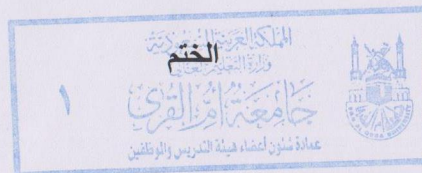 المملكة العربية السعودية
الختم
وزارة التعليم العالي
جامعة أم القرى
عمادة شئون أعضاء هيئة التدريس والموظفين
١